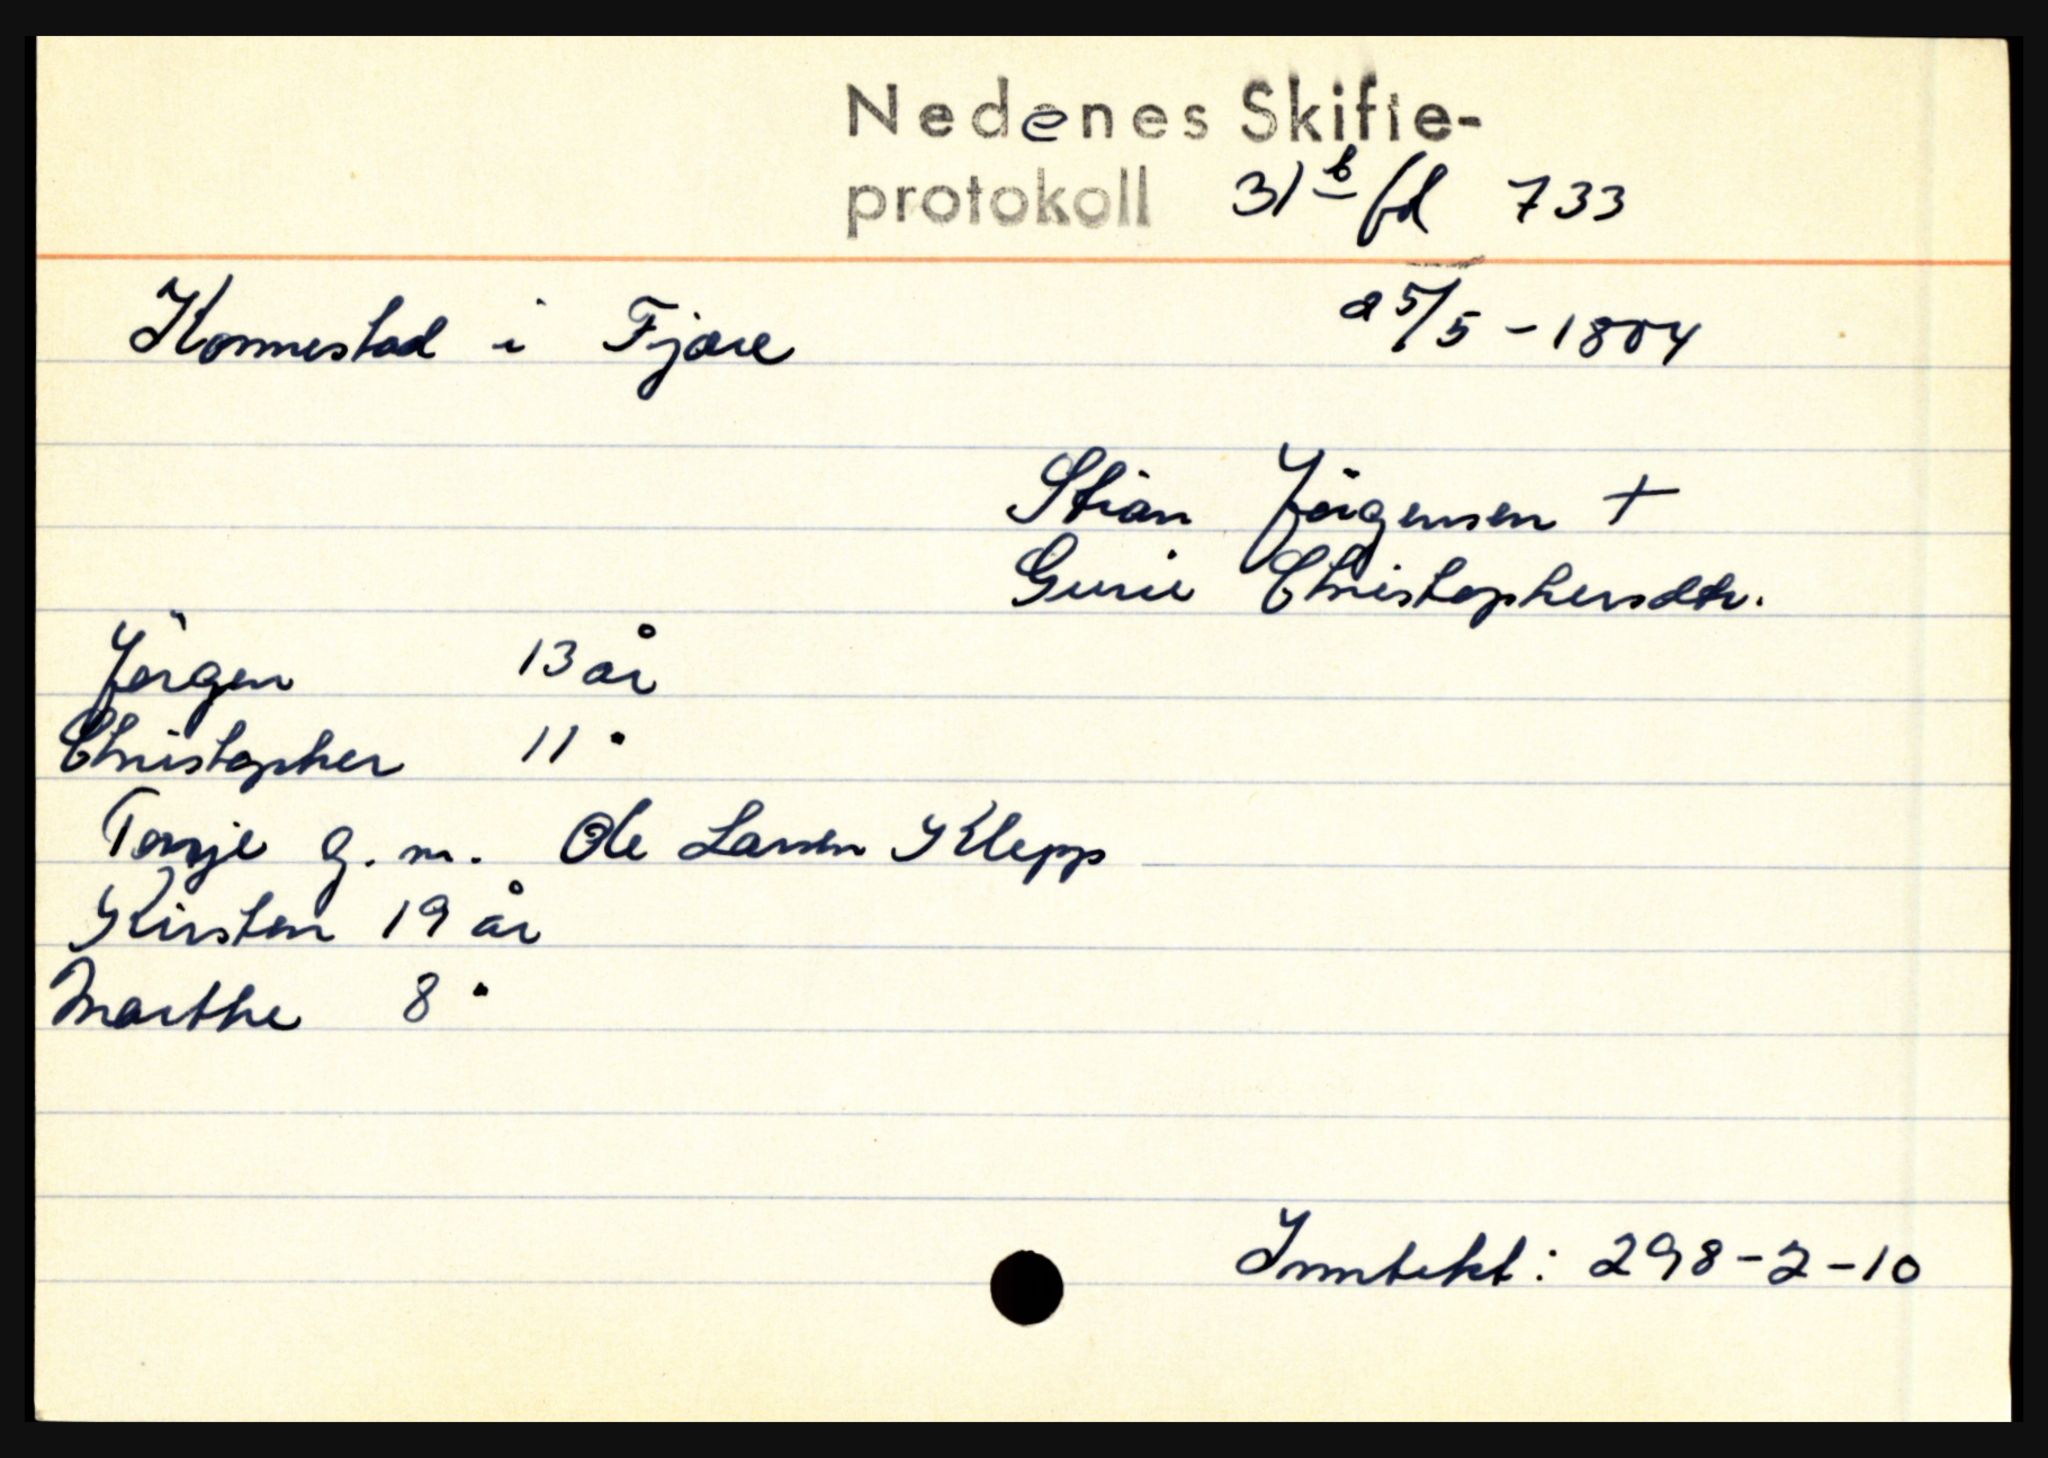 Nedenes Skifte-
protokoll 31 b fol 733
Kommestad i Fjære 25/5 - 1804
Stian Jörgensen +
Gurie Christophersdtr.
Jörgen 13 år
Christopher 11 "
Tonje g. m. Ole Larsen Klepp
Kirsten 19 år
Marthe 8 "
Inntekt: 298-2-10